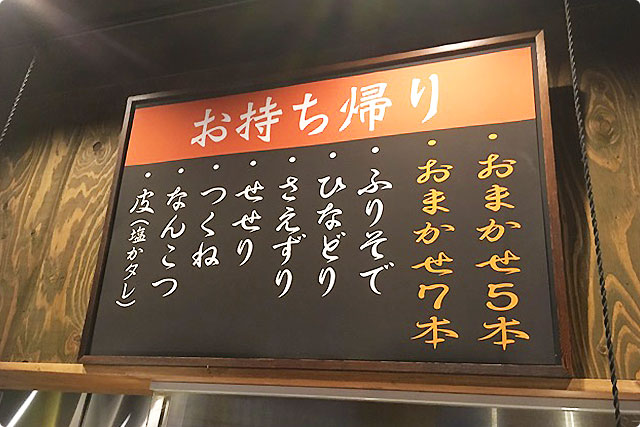 お持ち帰り
・おまかせ5本
・おまかせ7本
・ふりそで
・ひなどり
・さえずり
・せせり
・つくね
・なんこつ
・皮(塩かタレ)